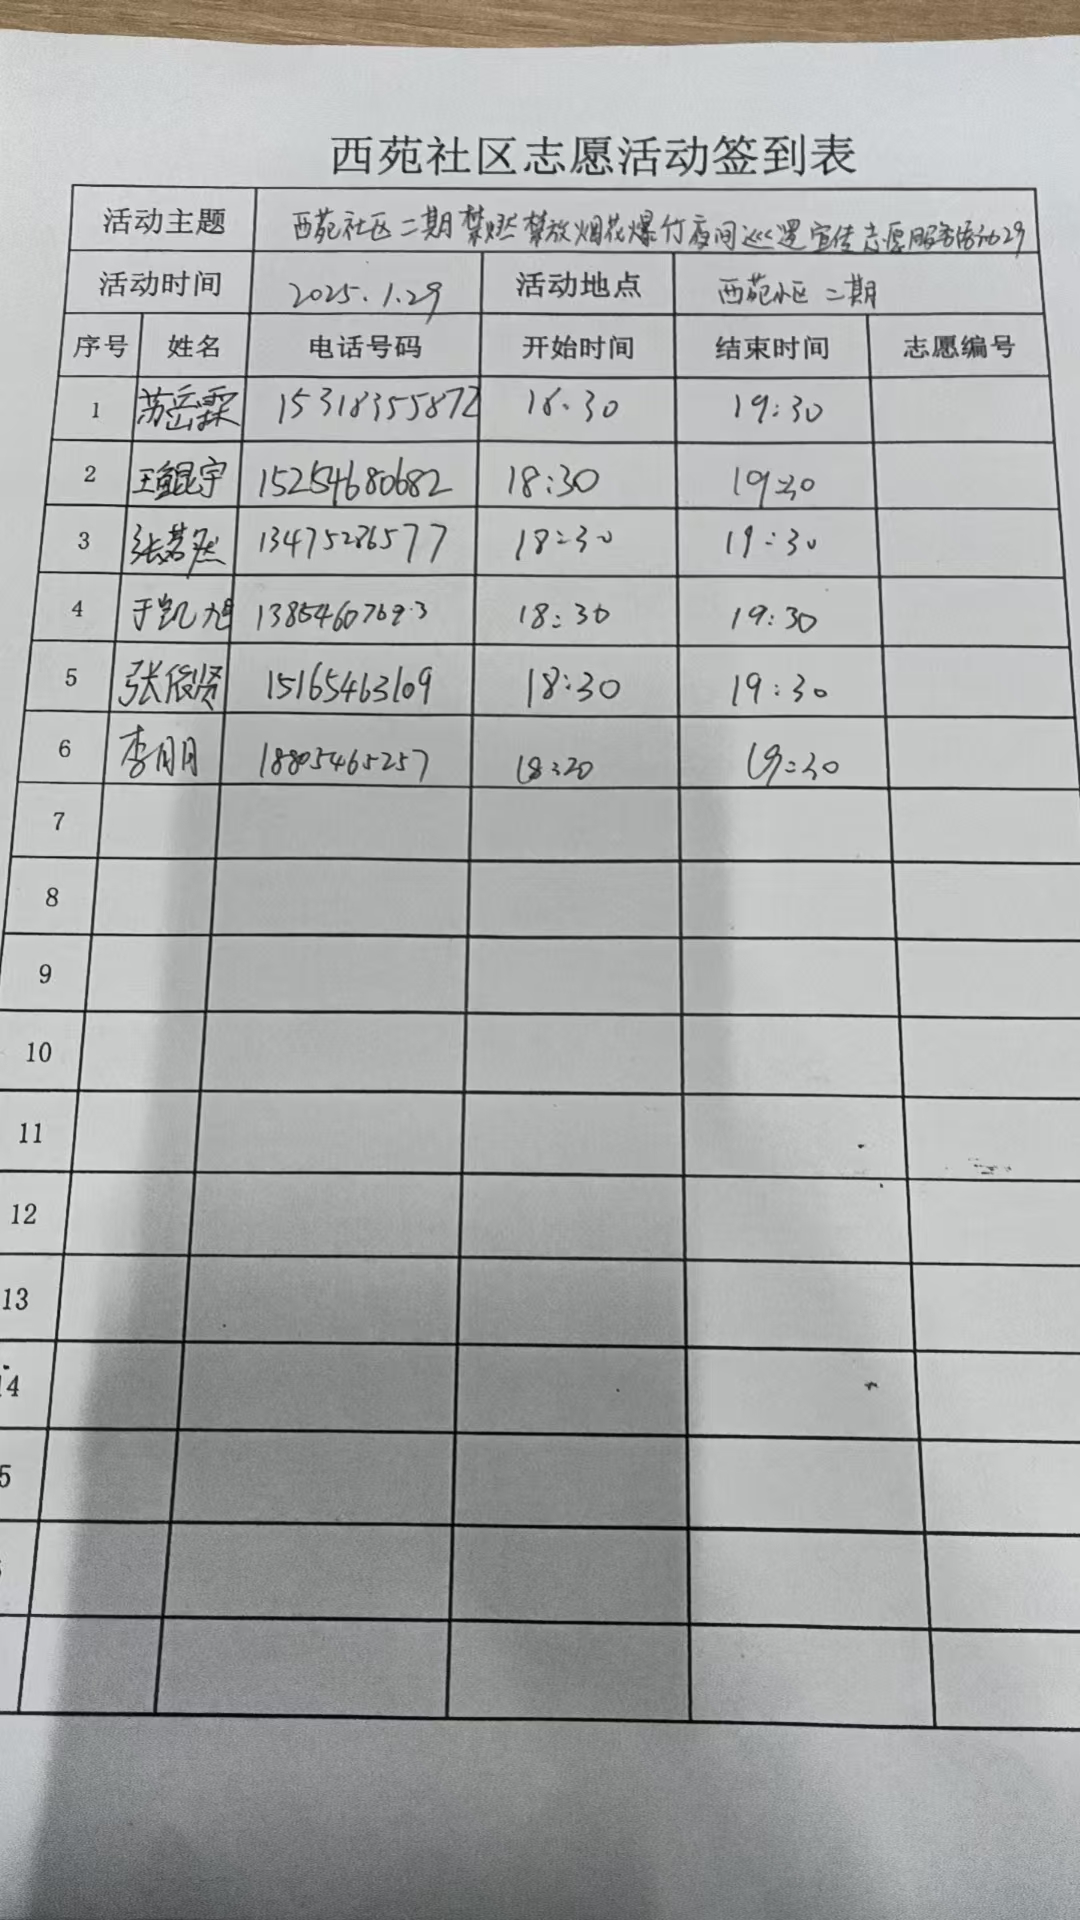 西苑社区志愿活动签到表
活动主题 西苑社区二期禁燃禁放烟花爆竹夜间巡逻宣传志愿服务活动29
活动时间 2025.1.29 活动地点 西苑小区二期
序号 姓名 电话号码 开始时间 结束时间 志愿编号
1 苏霖 15318355872 18:30 19:30
2 王鲲宇 15254680682 18:30 19:30
3 张若然 13475286577 18:30 19:30
4 于凯旭 13854607693 18:30 19:30
5 张俊贤 15165463109 18:30 19:30
6 李朋 18805465257 18:30 19:30
7
8
9
10
11
12
13
14
5